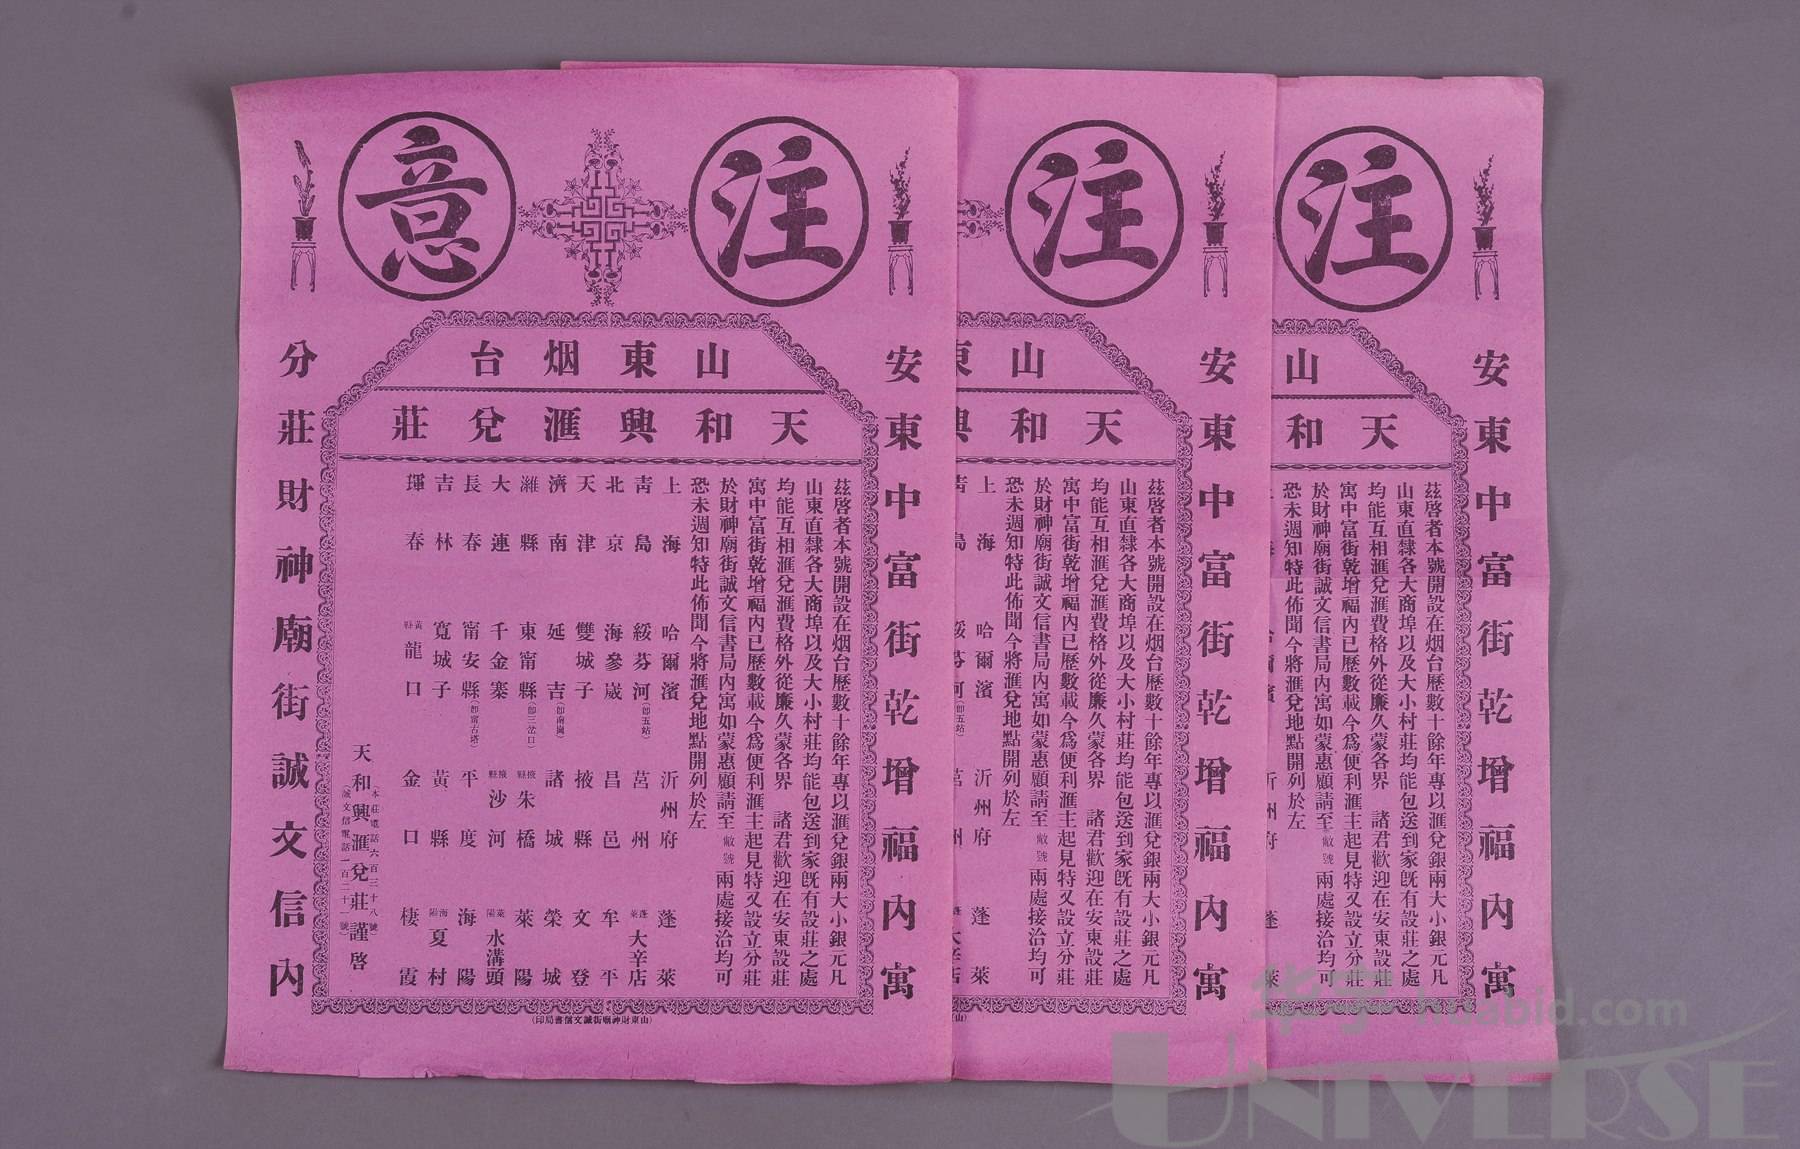 注意
安東中富街乾增福內寓
山東烟台
天和興滙兌莊
茲啓者本號開設在烟台歷數十餘年專以滙兌銀兩大小銀元凡
山東直隸各大商埠以及大小村莊均能包送到家旣有設莊之處
均能互相滙兌滙費格外從廉久蒙各界 諸君歡迎在安東設莊
寓中富街乾增福內已歷數載今爲便利滙主起見特又設立分莊
於財神廟街誠文信書局內寓如蒙惠顧請至敝號兩處接洽均可
恐未週知特此佈聞今將滙兌地點開列於左
上海 哈爾濱 沂州府 蓬萊
靑島 綏芬河(卽五站) 莒州 蓬萊大辛店
北京 海參崴 昌邑 牟平
天津 雙城子 掖縣 文登
濟南 延吉(卽南崗) 諸城 榮城
濰縣 東甯縣(卽三岔口) 掖縣朱橋 萊陽
大連 千金寨 掖縣沙河 萊陽水溝頭
長春 甯安縣(卽甯古塔) 平度 海陽
吉林 寬城子 黃縣 海陽夏村
琿春 黃縣龍口 金口 棲霞
(本莊電話六百三十八號
誠文信電話一百二十一號)
天和興滙兌莊謹啓
分莊財神廟街誠文信內
(山東財神廟街誠文信書局印)
注
安東中富街乾增福內寓
山東
天和興
茲啓者本號開設在烟台歷數十餘年專以滙兌銀兩大小銀元凡
山東直隸各大商埠以及大小村莊均能包送到家旣有設莊之處
均能互相滙兌滙費格外從廉久蒙各界 諸君歡迎在安東設莊
寓中富街乾增福內已歷數載今爲便利滙主起見特又設立分莊
於財神廟街誠文信書局內寓如蒙惠顧請至敝號兩處接洽均可
恐未週知特此佈聞今將滙兌地點開列於左
上海 哈爾濱 沂州府 蓬萊
靑島 綏芬河(卽五站) 莒州 蓬萊大辛店
(山
注
安東中富街乾增福內寓
山
天和
茲啓者本號開設在烟台歷數十餘年專以滙兌銀兩大小銀元凡
山東直隸各大商埠以及大小村莊均能包送到家旣有設莊之處
均能互相滙兌滙費格外從廉久蒙各界 諸君歡迎在安東設莊
寓中富街乾增福內已歷數載今爲便利滙主起見特又設立分莊
於財神廟街誠文信書局內寓如蒙惠顧請至敝號兩處接洽均可
恐未週知特此佈聞今將滙兌地點開列於左
上海 哈爾濱 沂州府 蓬萊
华宇 huabid.com
UNIVERSE